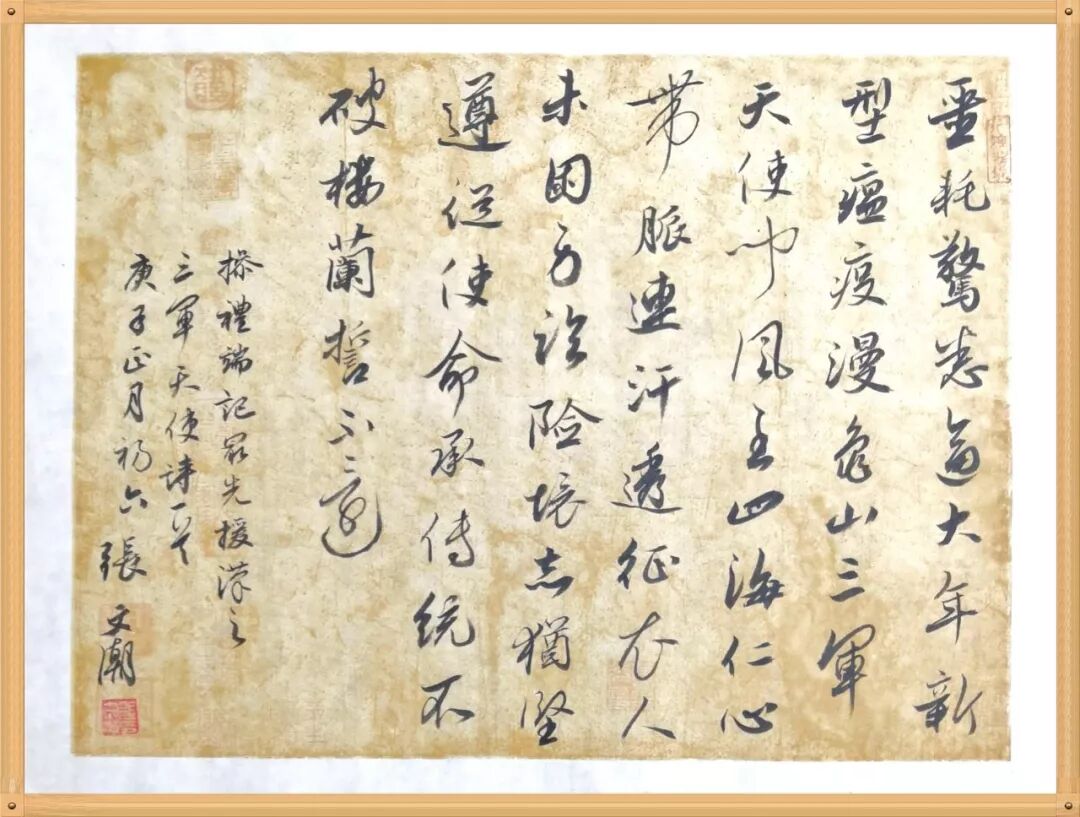 噩耗驚悉過大年新
型瘟疫漫龜山三軍
天使聞風至四海仁心
帶脈連汗透征衣人
未困身臨險境志猶堅
遵從使命承傳統不
破樓蘭誓不還
拨禮端記最先援漢之
三軍天使詩一首
庚子正月初六
張文潮